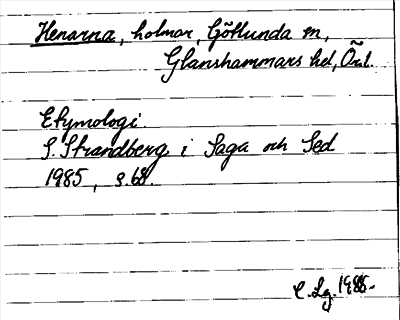 Henarna, holmar, Götlunda sn,
Glanshammars hd, Örl.
Etymologi.
S. Strandberg i Saga och Sed
1985, s. 68.
C. Lg. 1986.